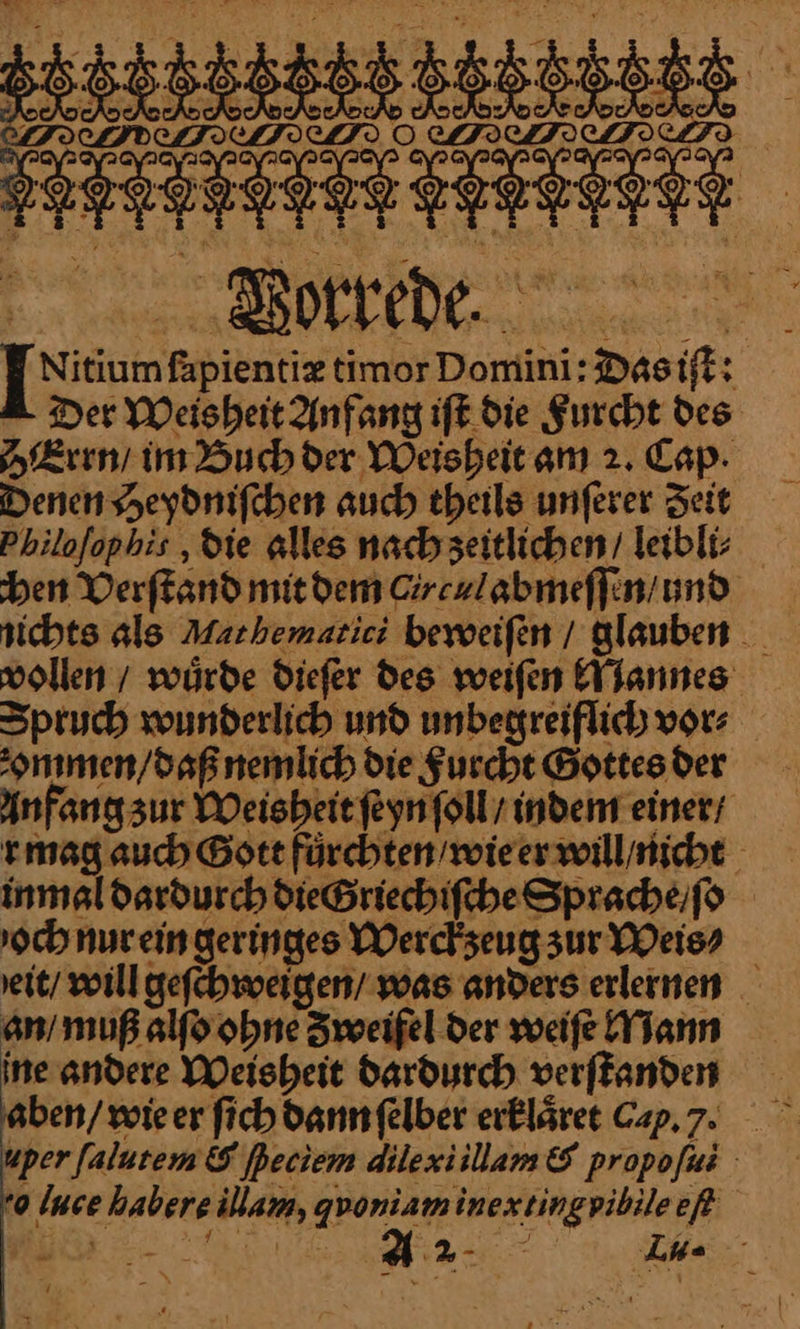 Vorrede.
INitium ſapientiæ timor Domini: Das iſt:
Der Weisheit Anfang iſt die Furcht des
HErrn/ im Buch der Weisheit am 2. Cap.
Denen Heydniſchen auch theils unſerer Zeit
Philoſophis, die alles nach zeitlichen/ leibli⸗
chen Verſtand mit dem Circul abmeſſen/ und
nichts als Mathematici beweiſen / glauben
wollen / wuͤrde dieſer des weiſen Mannes
Spruch wunderlich und unbegreiflich vor⸗
ommen/ daß nemlich die Furcht Gottes der
Anfang zur Weisheit ſeyn ſoll / indem einer/
r mag auch Gott fuͤrchten/ wie er will/ nicht
inmal dardurch die Griechiſche Sprache/ ſo
och nur ein geringes Werckzeug zur Weis⸗
eit/ will geſchweigen/ was anders erlernen
an/ muß alſo ohne Zweifel der weiſe Mann
ine andere Weisheit dardurch verſtanden
aben/ wie er ſich dann ſelber erklaͤret Cap. 7.
uper ſalutem & ſpeciem dilexi illam & propoſui
o luce habere illam, qvoniam inextingvibile eſt
A 2 Lu⸗